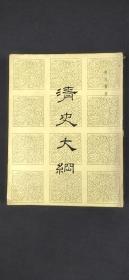 清史大綱